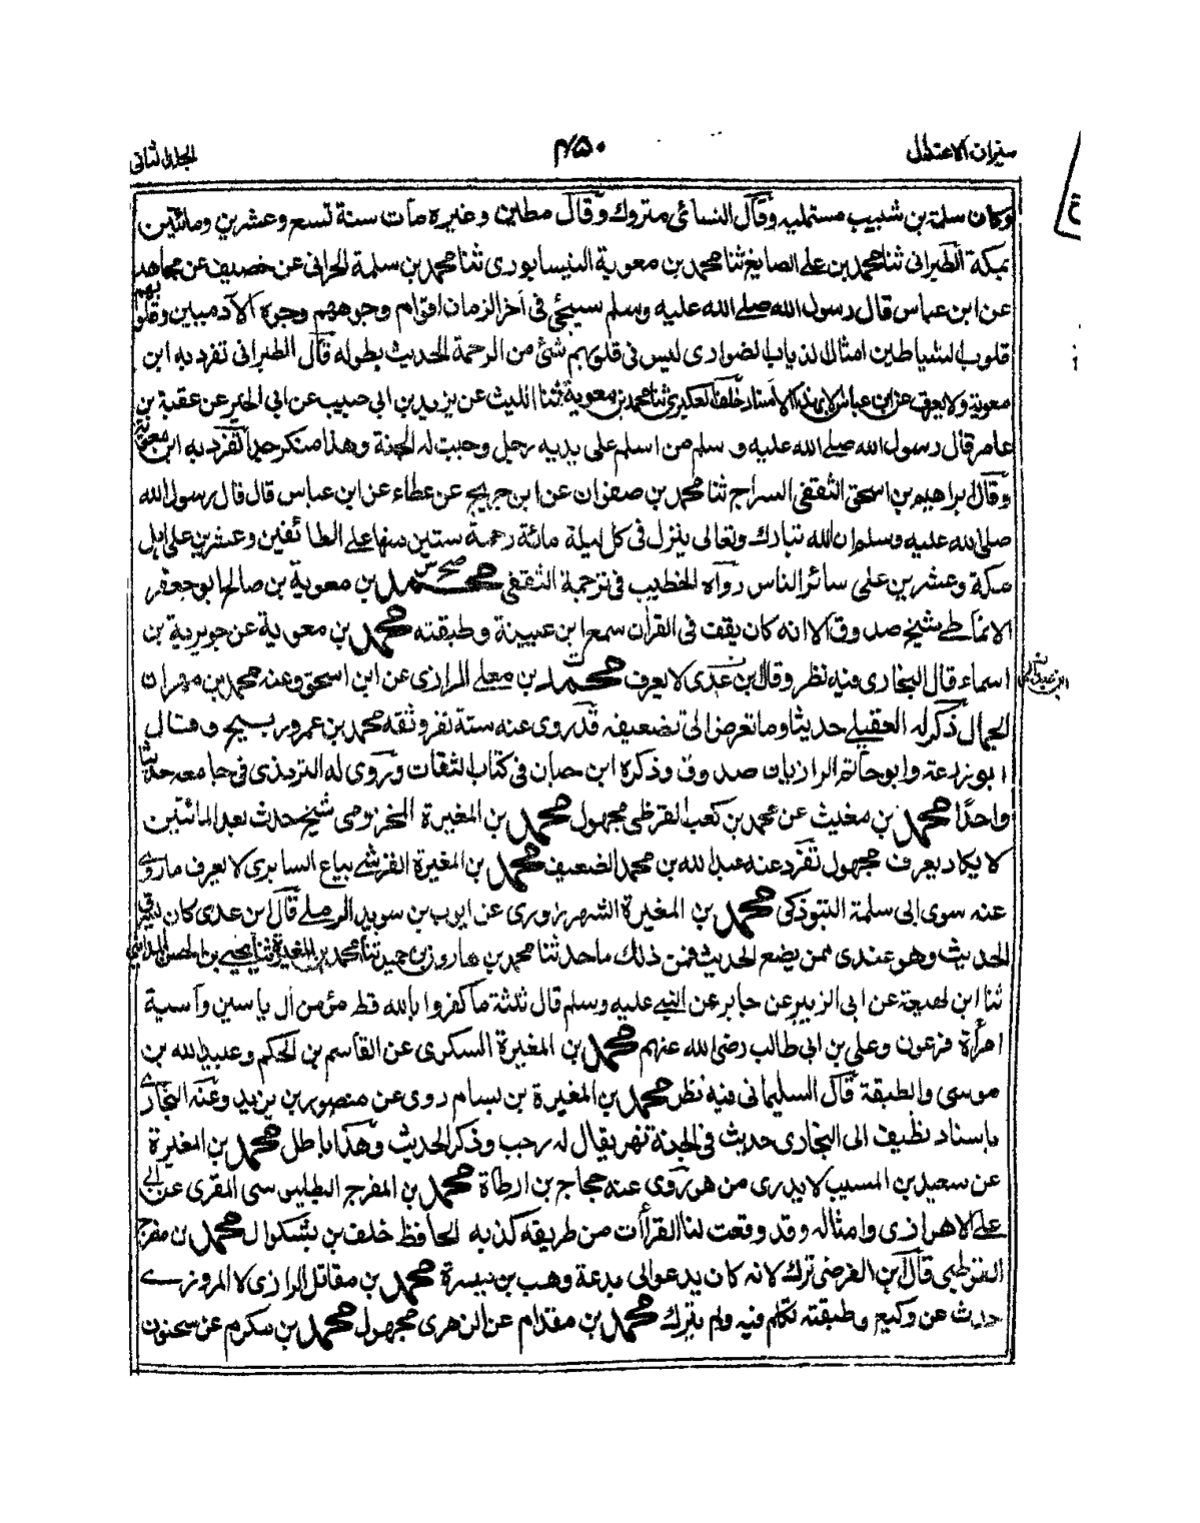 ميزان الاعتدال
٤٥٠
الجلد الثانى
وكان سلمة بن شبيب مستمليه وقال النسائى متروك وقال مطين وغيره مات سنة تسع وعشرين ومائتين
بمكة الطبرانى ثنا محمد بن على الصايغ ثنا محمد بن معوية النيسابورى ثنا محمد بن سلمة الحرانى عن خصيف عن مجاهد
عن ابن عباس قال رسول الله صلى الله عليه وسلم سيجئ فى آخر الزمان اقوام وجوههم وجوه الآدميين وقلوبهم
قلوب الشياطين امثال الذياب الضوارى ليس فى قلوبهم شئ من الرحمة الحديث بطوله قال الطبرانى تفرد به ابن
معوية ولا يعرف عن ابن عباس الا بهذا الاسناد خلف العكبرى ثنا محمد بن معوية ثنا الليث عن يزيد بن ابى حبيب عن ابى الخير عن عقبة بن
عامر قال رسول الله صلى الله عليه وسلم من اسلم على يديه رجل وجبت له الجنة وهذا منكر جدا تفرد به ابن معوية
وقال ابراهيم بن اسحق الثقفى السراج ثنا محمد بن صفوان عن ابن جريج عن عطاء عن ابن عباس قال قال رسول الله
صلى الله عليه وسلم ان الله تبارك وتعالى ينزل فى كل ليلة مائة رحمة ستين منها على الطائفين وعشرين على اهل
مكة وعشرين على سائر الناس رواه الخطيب فى ترجمة الثقفى محمد بن معوية بن صالح ابو جعفر
الانماطى شيخ صدوق الا انه كان يقف فى القرآن سمع ابن عيينة وطبقته محمد بن معوية عن جويرية بن
اسماء قال البخارى فيه نظر وقال بن عدى لا يعرف محمد بن معلى الرازى عن ابن اسحق وعنه محمد بن مهران
الجمال ذكر له العقيلى حديثا وما تعرض الى تضعيفه قد روى عنه ستة نفر وثقه محمد بن عمرو ربسيح وقال
ابو زرعة وابو حاتم الرازيان صدوق وذكره ابن حبان فى كتاب الثقات وروى له الترمذى فى جامعه حديثا
واحدا محمد بن مغيث عن محمد بن كعب القرظى مجهول محمد بن المغيرة المخزومى شيخ حدث بعد المائتين
لا يكاد يعرف مجهول تفرد عنه عبد الله بن محمد الضعيف محمد بن المغيرة القرشى بياع السابرى لا يعرف ماروى
عنه سوى ابى سلمة التبوذكى محمد بن المغيرة الشهرزورى عن ايوب بن سويد الرملى قال ابن عدى كان يسرق
الحديث وهو عندى ممن يضع الحديث فمن ذلك ما حدثنا محمد بن هارون بن حميد ثنا محمد بن المغيرة ثنا يحيى بن الحسن المدائنى
ثنا ابن لهيعة عن ابى الزبير عن جابر عن النبى عليه وسلم قال ثلثة ما كفروا بالله قط مؤمن آل ياسين وآسية
امرأة فرعون وعلى بن ابى طالب رضى الله عنهم محمد بن المغيرة السكرى عن القاسم بن الحكم وعبيد الله بن
موسى والطبقة قال السليمانى فيه نظر محمد بن المغيرة بن بسام روى عن منصور بن يزيد وعنه البخارى
باسناد نظيف الى البخارى حديث فى الجنة نهر يقال له رجب وذكر الحديث وهذا باطل محمد بن المغيرة
عن سعيد بن المسيب لا يدرى من هو روى عنه حجاج بن ارطاة محمد بن المفرج البطليوسى المقرى عن ابى
على الاهوازى وامثاله وقد وقعت لنا القرأات من طريقه كذبه الحافظ خلف بن بشكوال محمد بن مفرج
القرطبى قال ابن الفرضى ترك لانه كان يدعو الى بدعة وهب بن ميسرة محمد بن مقاتل الرازى لا المروزى
حدث عن وكيع وطبقته تكلم فيه ولم يترك محمد بن مقدام عن الزهرى مجهول محمد بن مكرم عن سحنون